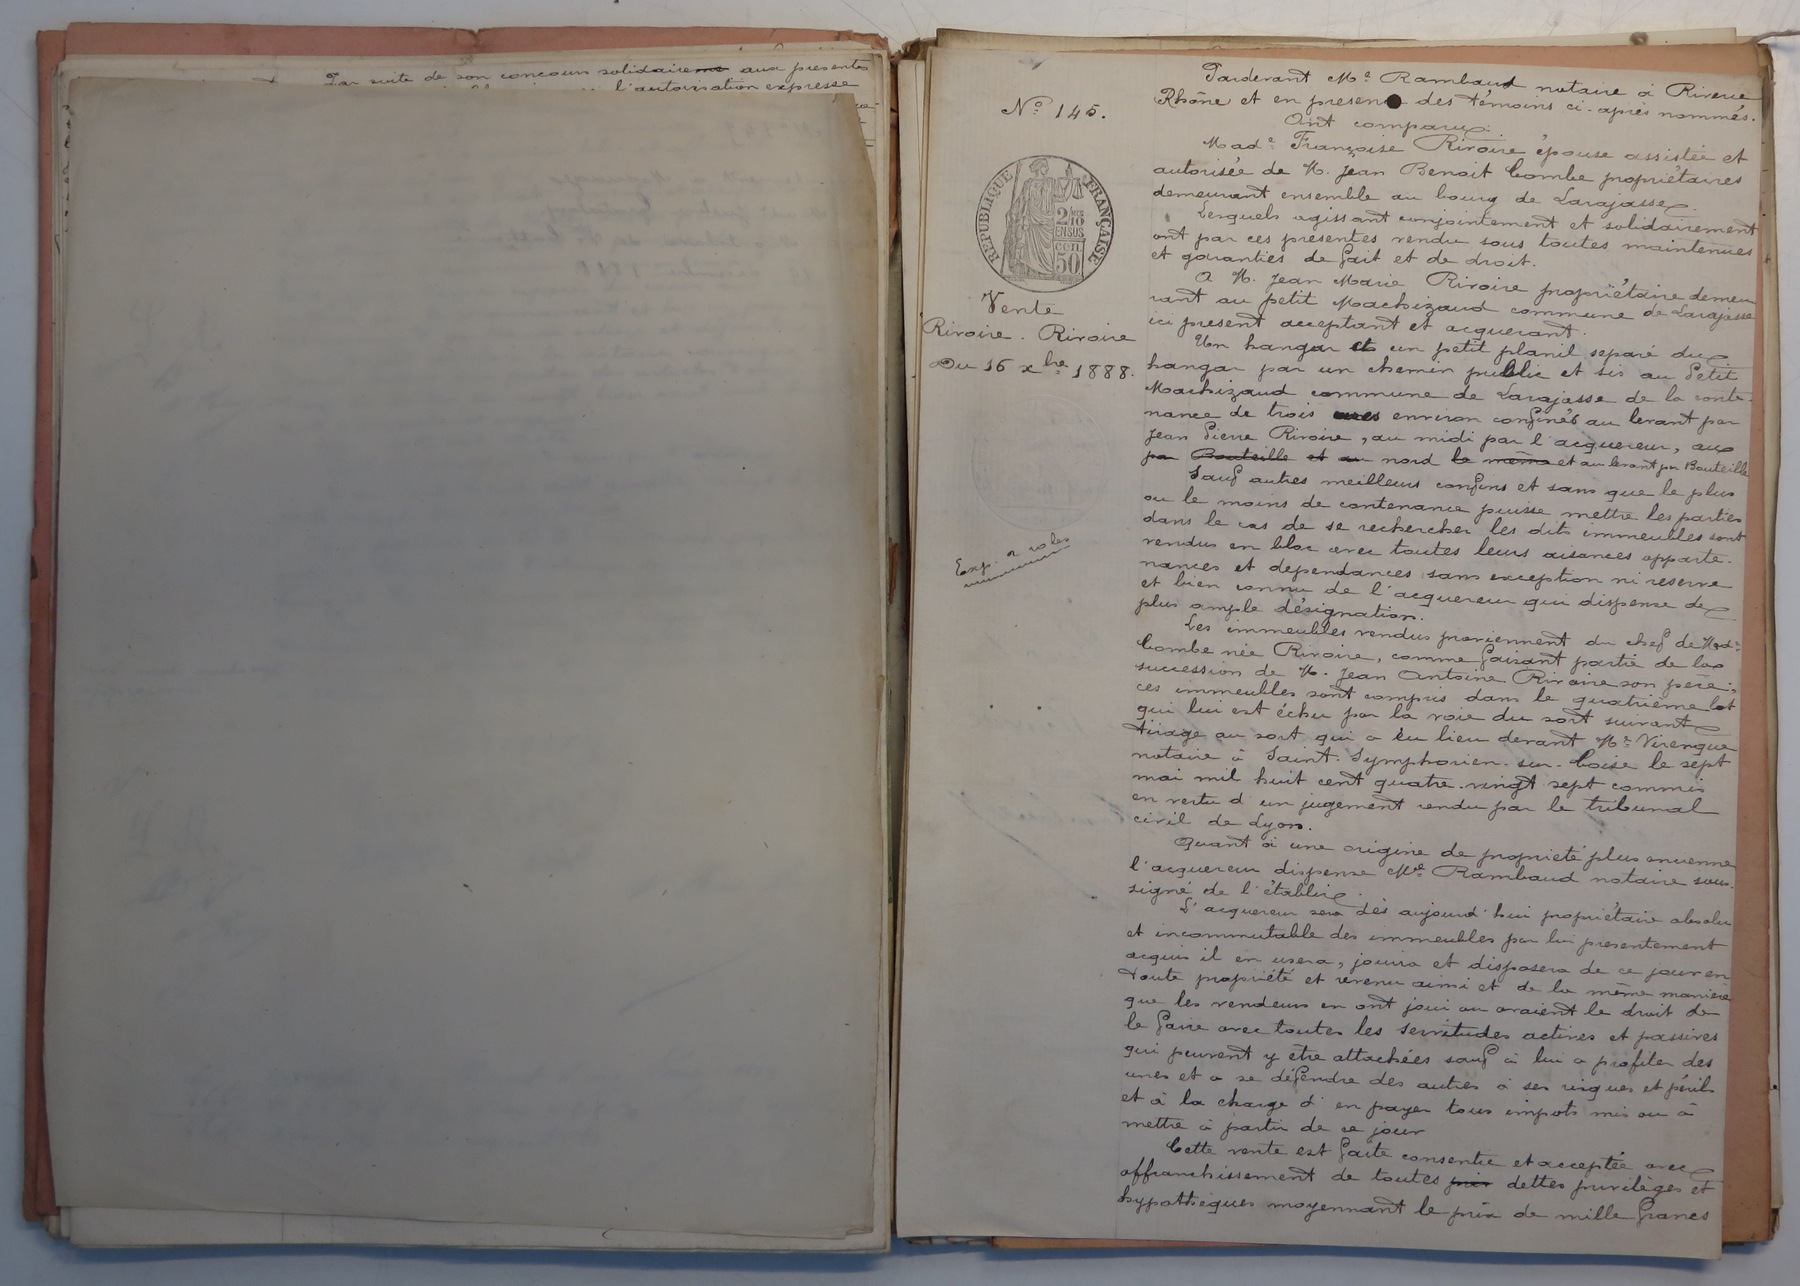 Par suite de son concours solidaire aux presentes
l'autorisation expresse
N° 145.
REPUBLIQUE FRANÇAISE
2/10
EN SUS
cen
50
Vente
Riroire . Riroire
Du 16 xbre 1888.
Exp. 2 roles
Pardevant Me Rambaud notaire à Riverie
Rhône et en presence des témoins ci-après nommés.
Ont comparu
Made Françoise Riroire épouse assistée et
autorisée de M. Jean Benoit Combe propriétaires
demeurant ensemble au bourg de Larajasse
Lesquels agissant conjointement et solidairement
ont par ces présentes vendu sous toutes maintenues
et garanties de fait et de droit.
A M. Jean Marie Riroire propriétaire demeu
rant au petit Machizaud commune de Larajasse
ici present acceptant et acquerant.
Un hangar et un petit planil separé du
hangar par un chemin public et sis au Petit
Machizaud commune de Larajasse de la conte-
nance de trois ares environ confinés au levant par
Jean Pierre Riroire, au midi par l'acquereur, au
par Bouteille et au nord le même et au levant par Bouteille
Sauf autres meilleurs confins et sans que le plus
ou le moins de contenance puisse mettre les parties
dans le cas de se rechercher les dits immeubles sont
vendus en bloc avec toutes leurs aisances apparte-
nances et dependances sans exception ni reserve
et bien connu de l'acquereur qui dispense de
plus ample désignation.
Les immeubles vendus proviennent du chef de Made
Combe née Riroire, comme faisant partie de la
succession de M. Jean Antoine Riroire son père;
ces immeubles sont compris dans le quatrième lot
qui lui est échu par la voie du sort suivant
tirage au sort qui a eu lieu devant Me Virengue
notaire à Saint-Symphorien-sur-Coise le sept
mai mil huit cent quatre-vingt sept commis
en vertu d'un jugement rendu par le tribunal
civil de Lyon.
Quant à une origine de propriété plus ancienne
l'acquereur dispense Me Rambaud notaire sous-
signé de l'établir
L'acquereur sera dès aujourd'hui propriétaire absolu
et incommutable des immeubles par lui presentement
acquis il en usera, jouira et disposera de ce jour en
toute propriété et revenu ainsi et de la même manière
que les vendeurs en ont joui ou avaient le droit de
le faire avec toutes les servitudes actives et passives
qui peuvent y être attachées sauf à lui a profiter des
unes et a se défendre des autres à ses risques et périls
et à la charge d'en payer tous impots mis ou à
mettre à partir de ce jour
Cette vente est faite consentie et acceptée avec
affranchissement de toutes dettes privilèges et
hypothèques moyennant le prix de mille francs